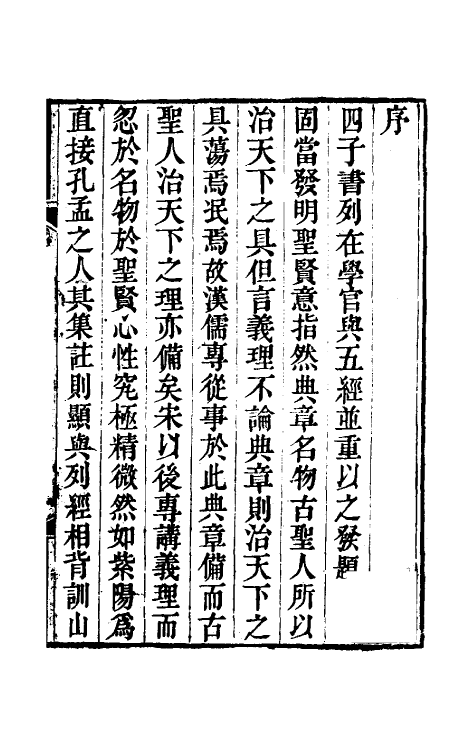 序
四子書列在學官與五經並重以之發題
固當發明聖賢意指然典章名物古聖人所以
治天下之具但言義理不論典章則治天下之
具蕩焉泯焉故漢儒專從事於此典章備而古
聖人治天下之理亦備矣宋以後專講義理而
忽於名物於聖賢心性究極精微然如紫陽爲
直接孔孟之人其集註則顯與列經相背訓山